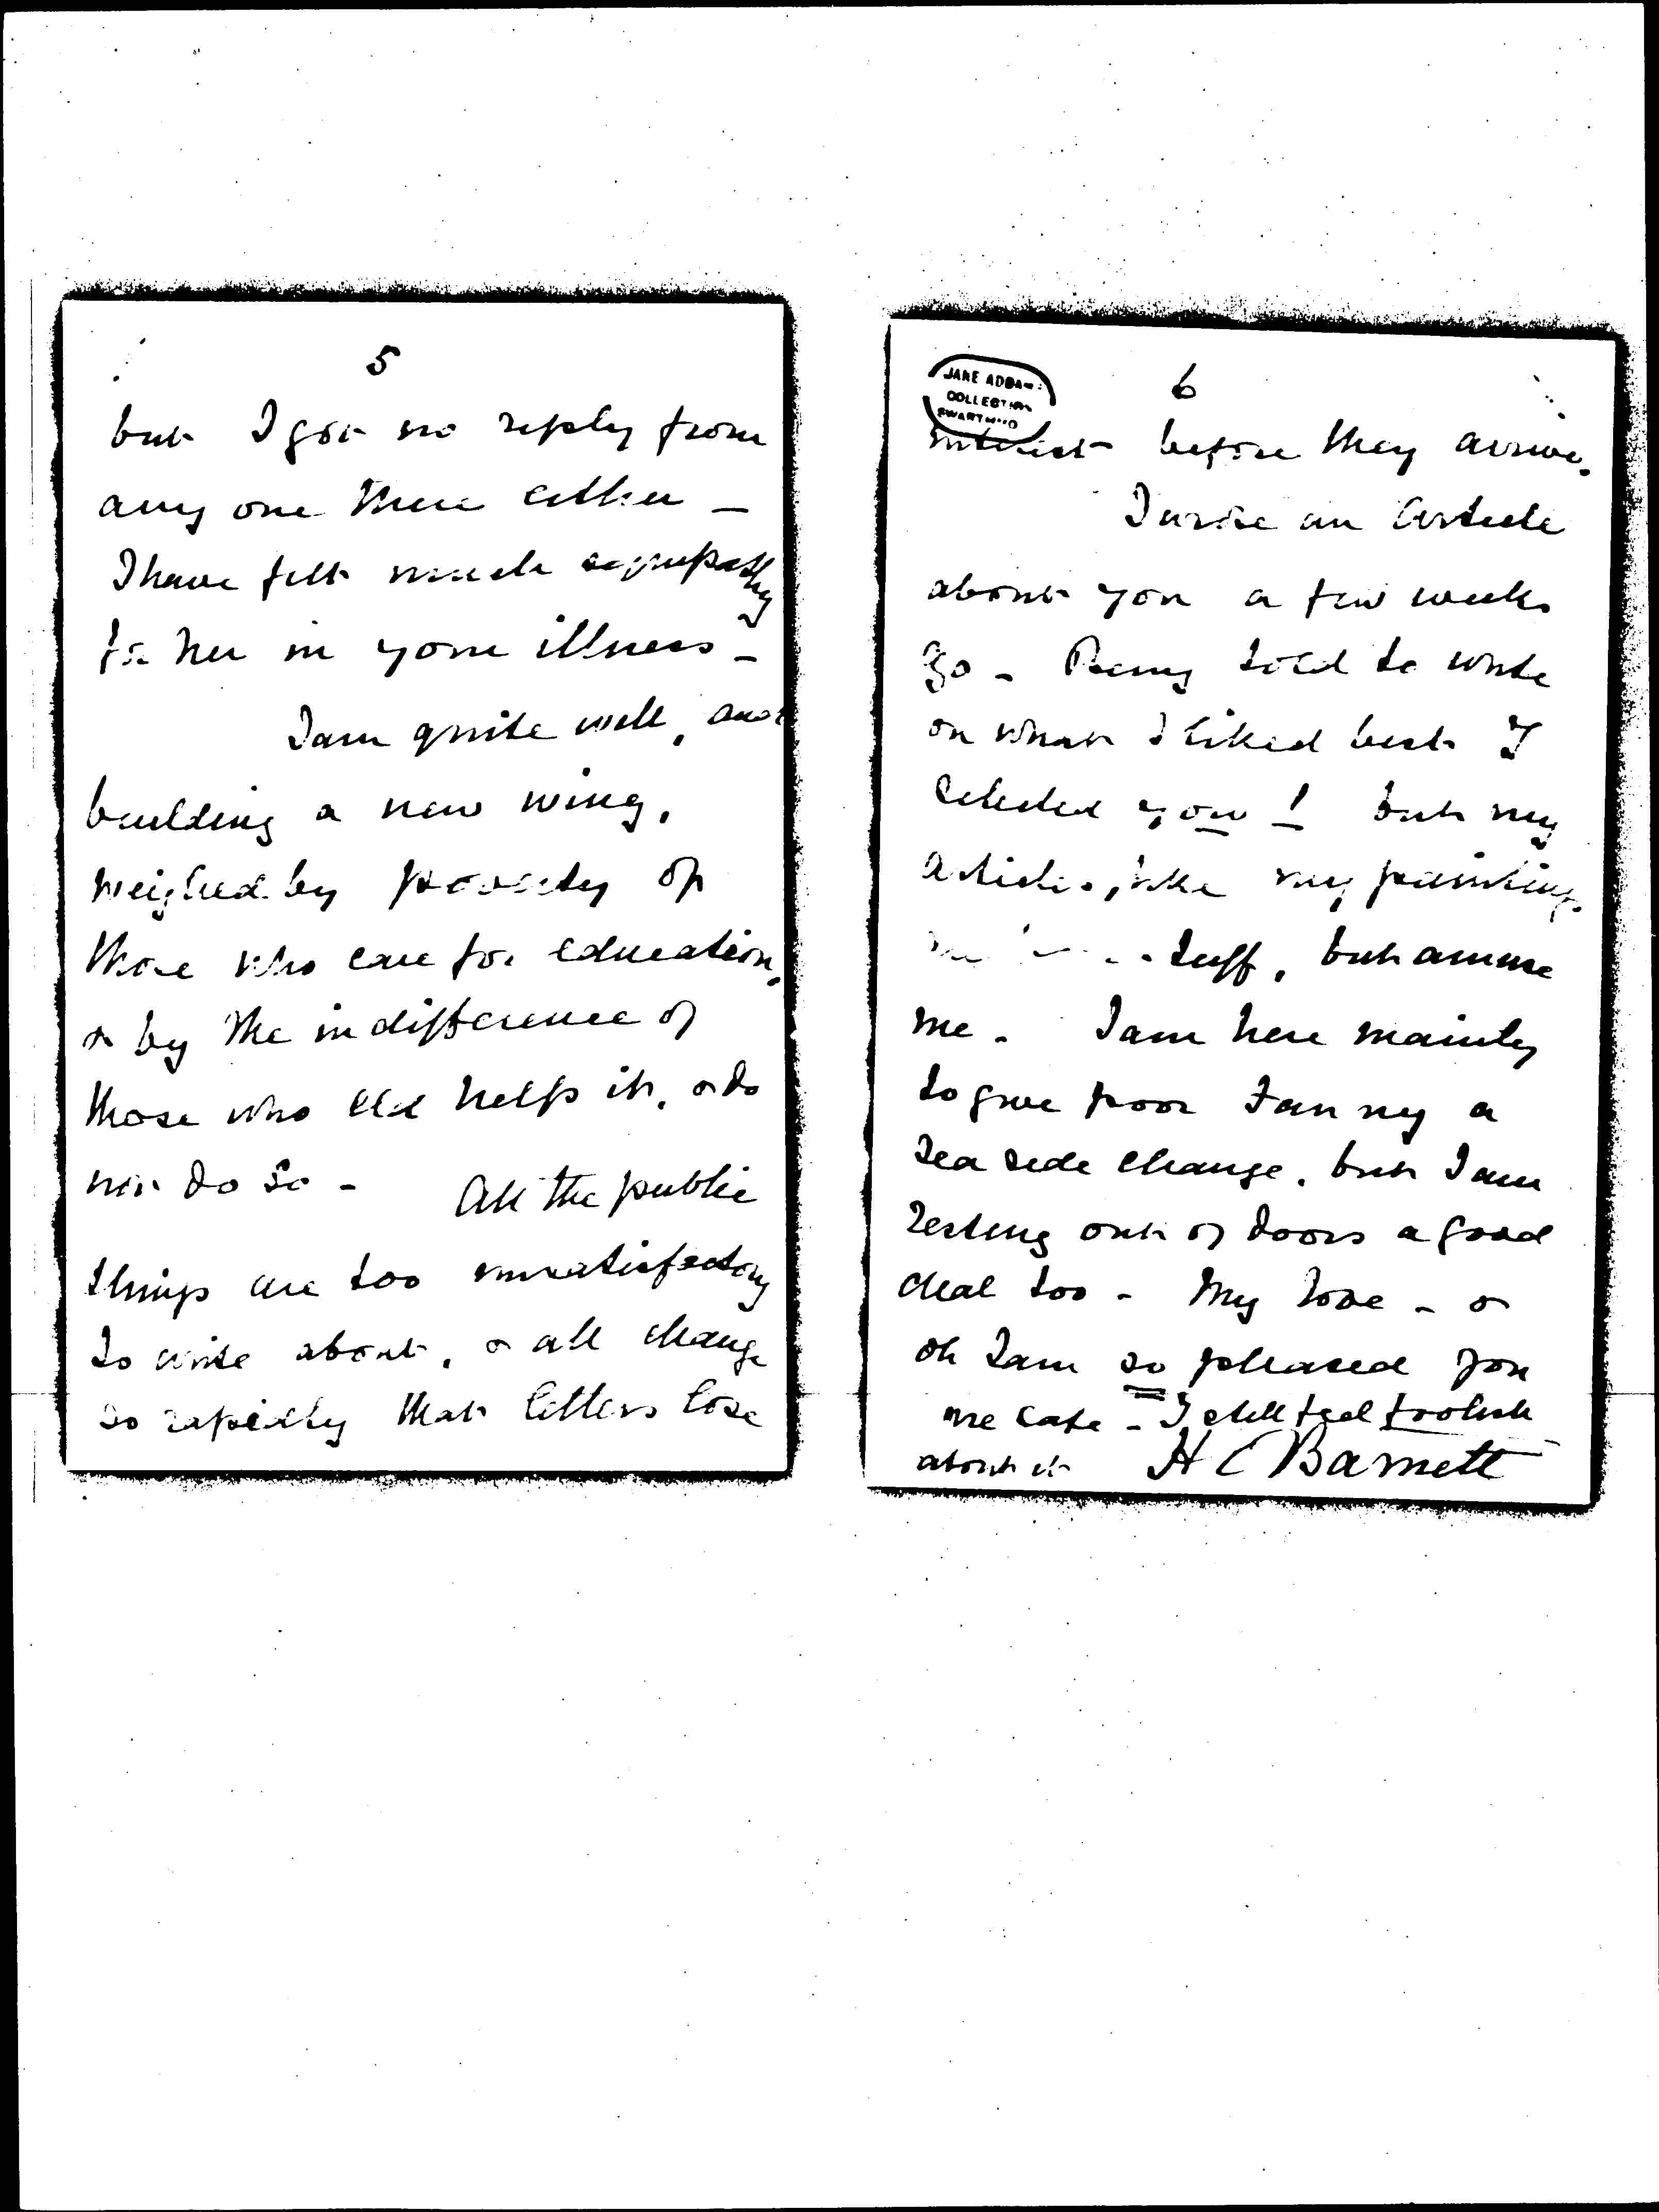 5
but I got no reply from
any one there either -
I have felt much sympathy
for her in your illness -
I am quite well, and
building a new wing,
weighed by poverty of
those who care for education,
& by the indifference of
those who cld help it, & do
not do so - All the public
things are too unsatisfactory
to write about, & all change
so rapidly that letters lose
6
JANE ADDAMS
COLLECTION
SWARTHMORE
interest before they arrive.
I wrote an Article
about you a few weeks
go - Being told to write
on what I liked best I
selected you! but my
articles, like my paintings,
stuff, but amuse
me. I am here mainly
to give poor Fanny a
sea side change, but I am
resting out of doors a good
deal too - My love - &
oh I am so pleased you
are safe - I still feel foolish
about it H C Barnett